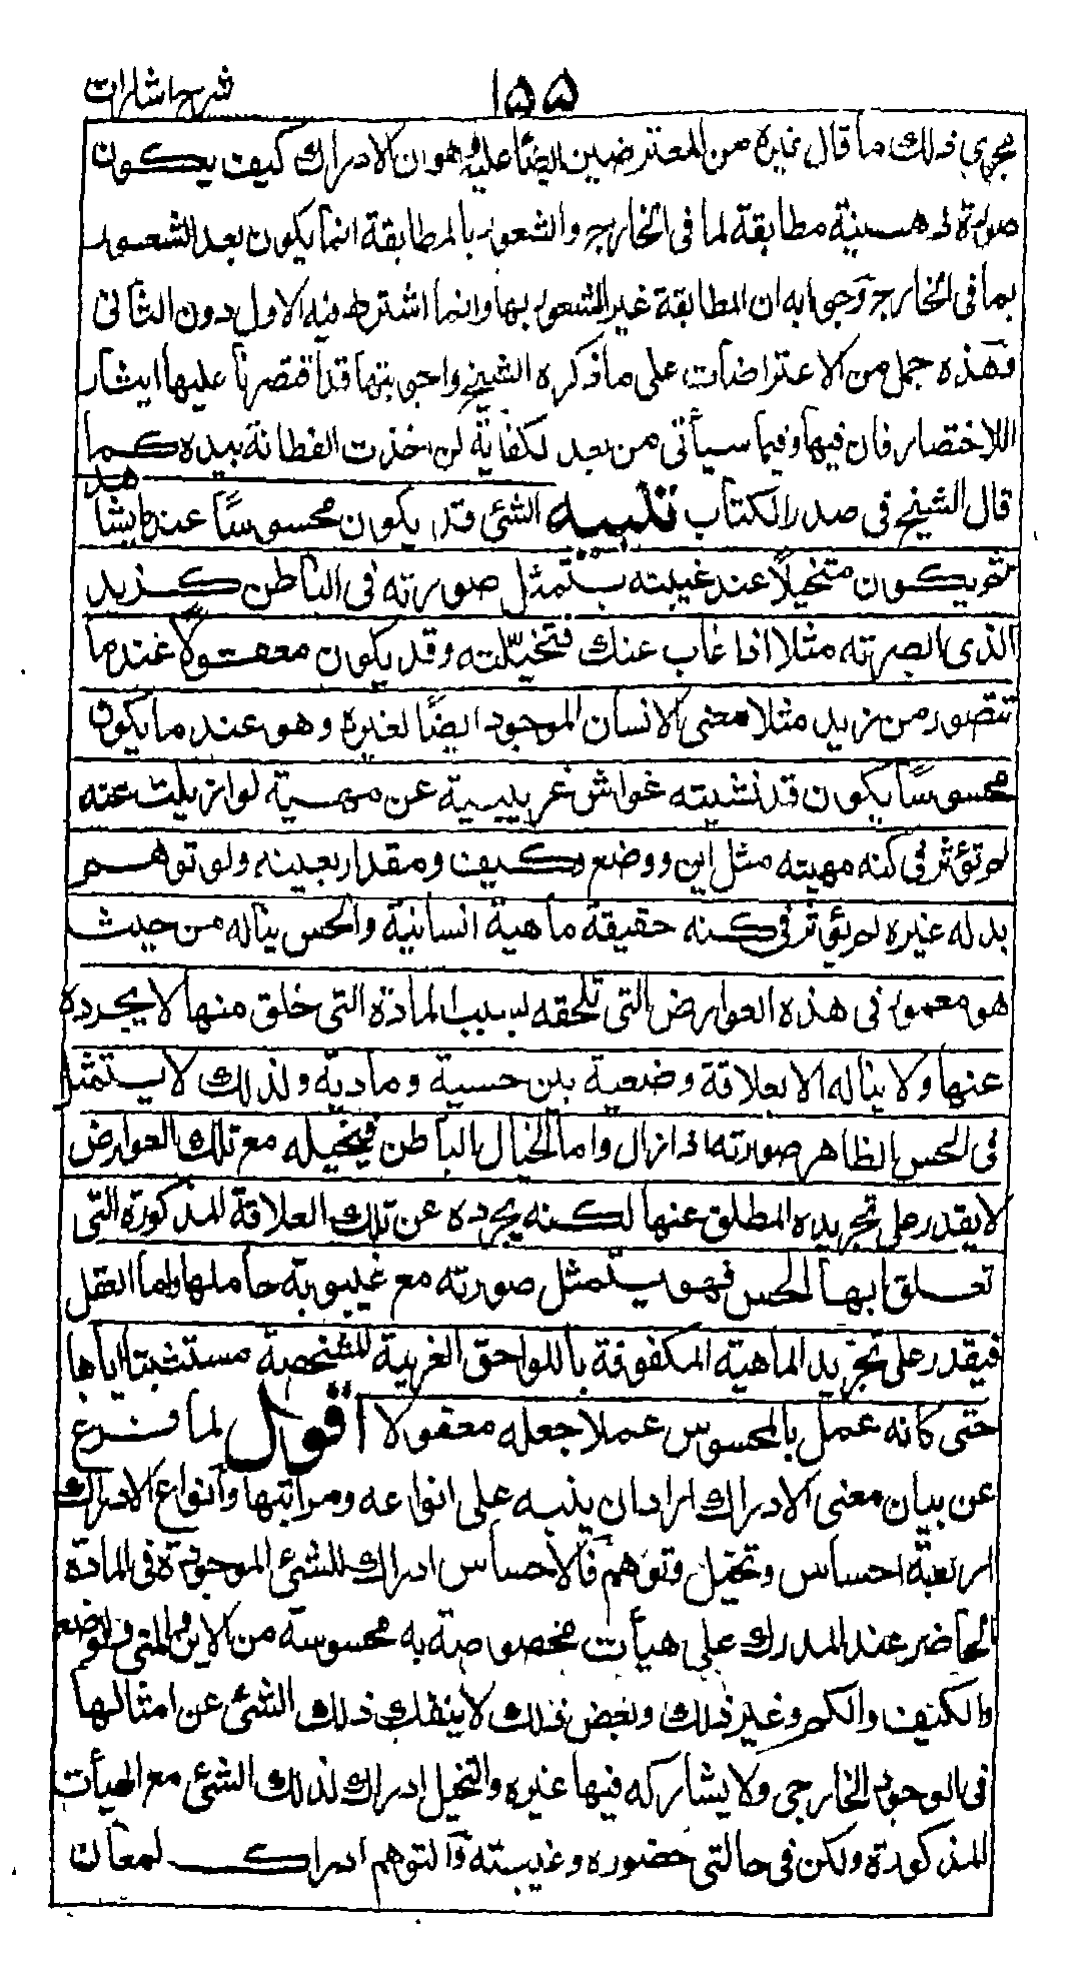 ١٥٥ شرح اشارات
مجرى ذلك ما قال غيره من المعترضين ايضًا عليه وهو ان الادراك كيف يكون
صورة ذهسنية مطابقة لما فى الخارج والشعور بالمطابقة انما يكون بعد الشعور
بما فى الخارج وجوابه ان المطابقة غير الشعور بها وانما اشترط فيه الاول دون الثانى
فهذه جمل من الاعتراضات على ما ذكره الشيخ واجوبتها قد اقتصرنا عليها ايثار
اللاختصار فان فيها وفيما سيأتى من بعد لكفاية لمن اخذت الفطانة بيده كما
قال الشيخ فى صدر الكتاب تنبيه الشئ قد يكون محسوسًا عند ما يشاهد
ثم يكون متخيلًا عند غيبته بتمثل صورته فى الباطن كزيد
الذى ابصرته مثلا اذا غاب عنك فتخيّلته وقد يكون معقولًا عندما
تتصور من زيد مثلا معنى الانسان الموجود ايضًا لغيره وهو عند ما يكون
محسوسًا يكون قد غشيته غواش غريبية عن مهية لو ازيلت عنه
لم تؤثر فى كنه مهيته مثل اين ووضع وكيف ومقدار بعينه ولو توهم
بدله غيره لم يؤثر فى كنه حقيقة ماهية انسانية والحس يناله من حيث
هو مغمور فى هذه العوارض التى تلحقه بسبب المادة التى خلق منها لا يجرده
عنها ولا يناله الا بعلاقة وضعية بين حسية ومادية ولذلك لا يستمثل
فى الحس الظاهر صورته اذا زال واما الخيال الباطن فيخيله مع تلك العوارض
لا يقدر على تجريده المطلق عنها لكنه يجرده عن تلك العلاقة المذكورة التى
تعلق بها الحس فهو يتمثل صورته مع غيبوبة حاملها واما العقل
فيقدر على تجريد الماهية المكفوفة باللواحق الغريبة المشخصة مستثبتا اياها
حتى كانه عمل بالمحسوس عملا جعله معقولا اقول لما فرغ
عن بيان معنى الادراك اراد ان ينبه على انواعه ومراتبها وانواع الادراك
اربعة احساس وتخيل وتوهم فالاحساس ادراك للشئ الموجود فى المادة
الحاضر عند المدرك على هيأت مخصوصة به محسوسة من الاين والمتى والوضع
والكيف والكم وغير ذلك وبعض ذلك لا ينفك ذلك الشئ عن امثالها
فى الوجود الخارجى ولا يشاركه فيها غيره والتخيل ادراك لذلك الشئ مع الهيأت
المذكورة ولكن فى حالتى حضوره وغيبته والتوهم ادراك لمعان